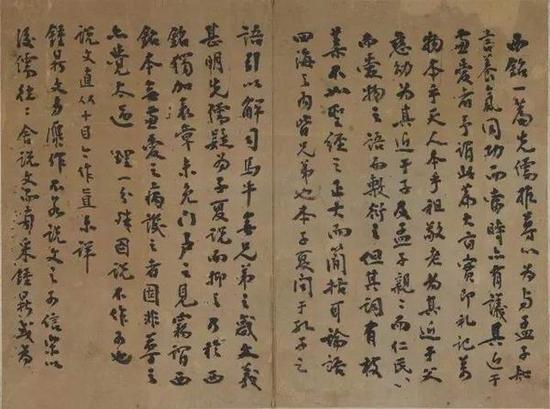 西銘一篇先儒推尊以為与孟子知
言養氣同功而當時亦有議其近于
兼愛者予謂此篇大旨實即礼記萬
物本乎天人本乎祖敬老為其近于父
慈幼為其近于子及孟子親〻而仁民〻
而愛物之語而敷衍之但其詞有枝
葉不如聖經之正大而簡括耳論語
四海之內皆兄弟也本子夏聞于孔子之
語引以解司馬牛無兄弟之感文義
甚明先儒疑為子夏說而抑之乃於西
銘獨加表章未免门户之見竊謂西
銘本無兼愛之病議之者固非尊之
亦覺太過 理一分殊因說不作可也
說文直从十目乚作直未詳
鍾鼎文多贋作不若說文之可信宋以
後儒往〻舍說文而專采鍾鼎或為